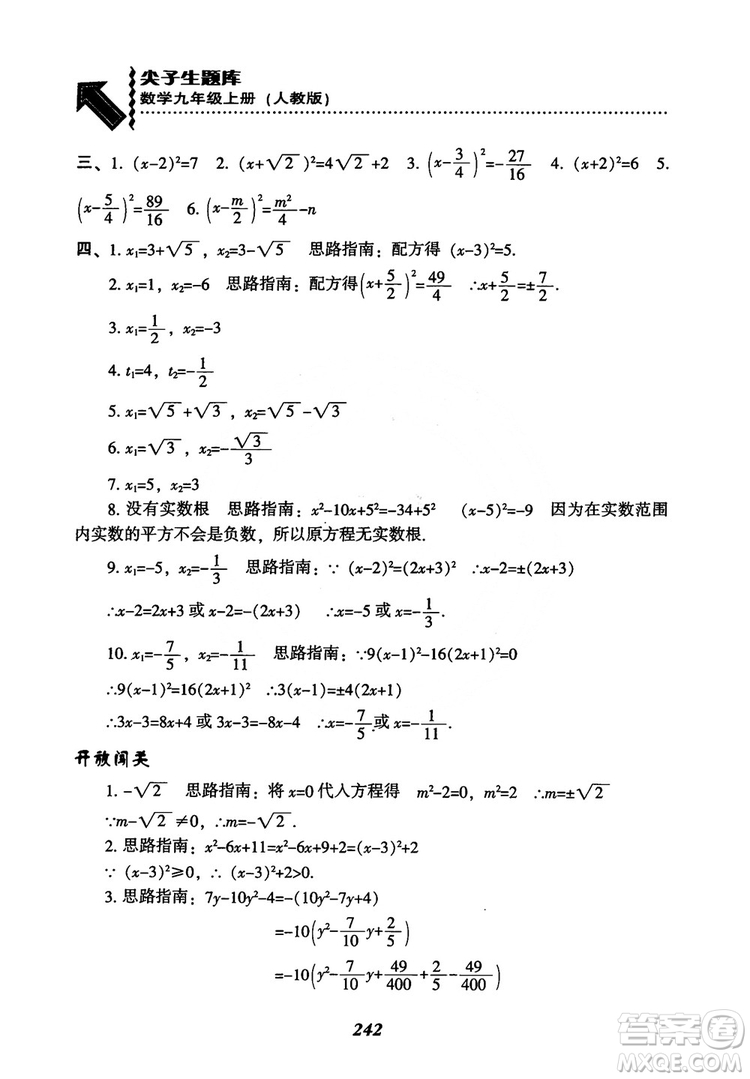 尖子生题库
数学九年级上册（人教版）
三、1. (x-2)²=7 2. (x+√2)²=4√2+2 3. (x-3/4)²=-27/16 4. (x+2)²=6 5.
(x-5/4)²=89/16 6. (x-m/2)²=m²/4-n
四、1. x₁=3+√5，x₂=3-√5 思路指南：配方得 (x-3)²=5.
2. x₁=1，x₂=-6 思路指南：配方得(x+5/2)²=49/4 ∴x+5/2=±7/2.
3. x₁=1/2，x₂=-3
4. t₁=4，t₂=-1/2
5. x₁=√5+√3，x₂=√5-√3
6. x₁=√3，x₂=-√3/3
7. x₁=5，x₂=3
8. 没有实数根 思路指南：x²-10x+5²=-34+5² (x-5)²=-9 因为在实数范围
内实数的平方不会是负数，所以原方程无实数根.
9. x₁=-5，x₂=-1/3 思路指南：∵ (x-2)²=(2x+3)² ∴x-2=±(2x+3)
∴x-2=2x+3 或 x-2=-(2x+3) ∴x=-5 或 x=-1/3.
10. x₁=-7/5，x₂=-1/11 思路指南：∵9(x-1)²-16(2x+1)²=0
∴9(x-1)²=16(2x+1)² ∴3(x-1)=±4(2x+1)
∴3x-3=8x+4 或 3x-3=-8x-4 ∴x=-7/5或 x=-1/11.
开放闯关
1. -√2 思路指南：将 x=0 代入方程得 m²-2=0，m²=2 ∴m=±√2
∵m-√2≠0，∴m=-√2.
2. 思路指南：x²-6x+11=x²-6x+9+2=(x-3)²+2
∵ (x-3)²≥0，∴ (x-3)²+2>0.
3. 思路指南：7y-10y²-4=-(10y²-7y+4)
=-10(y²-7/10y+2/5)
=-10(y²-7/10y+49/400+2/5-49/400)
242
答案圈
MXQE.COM